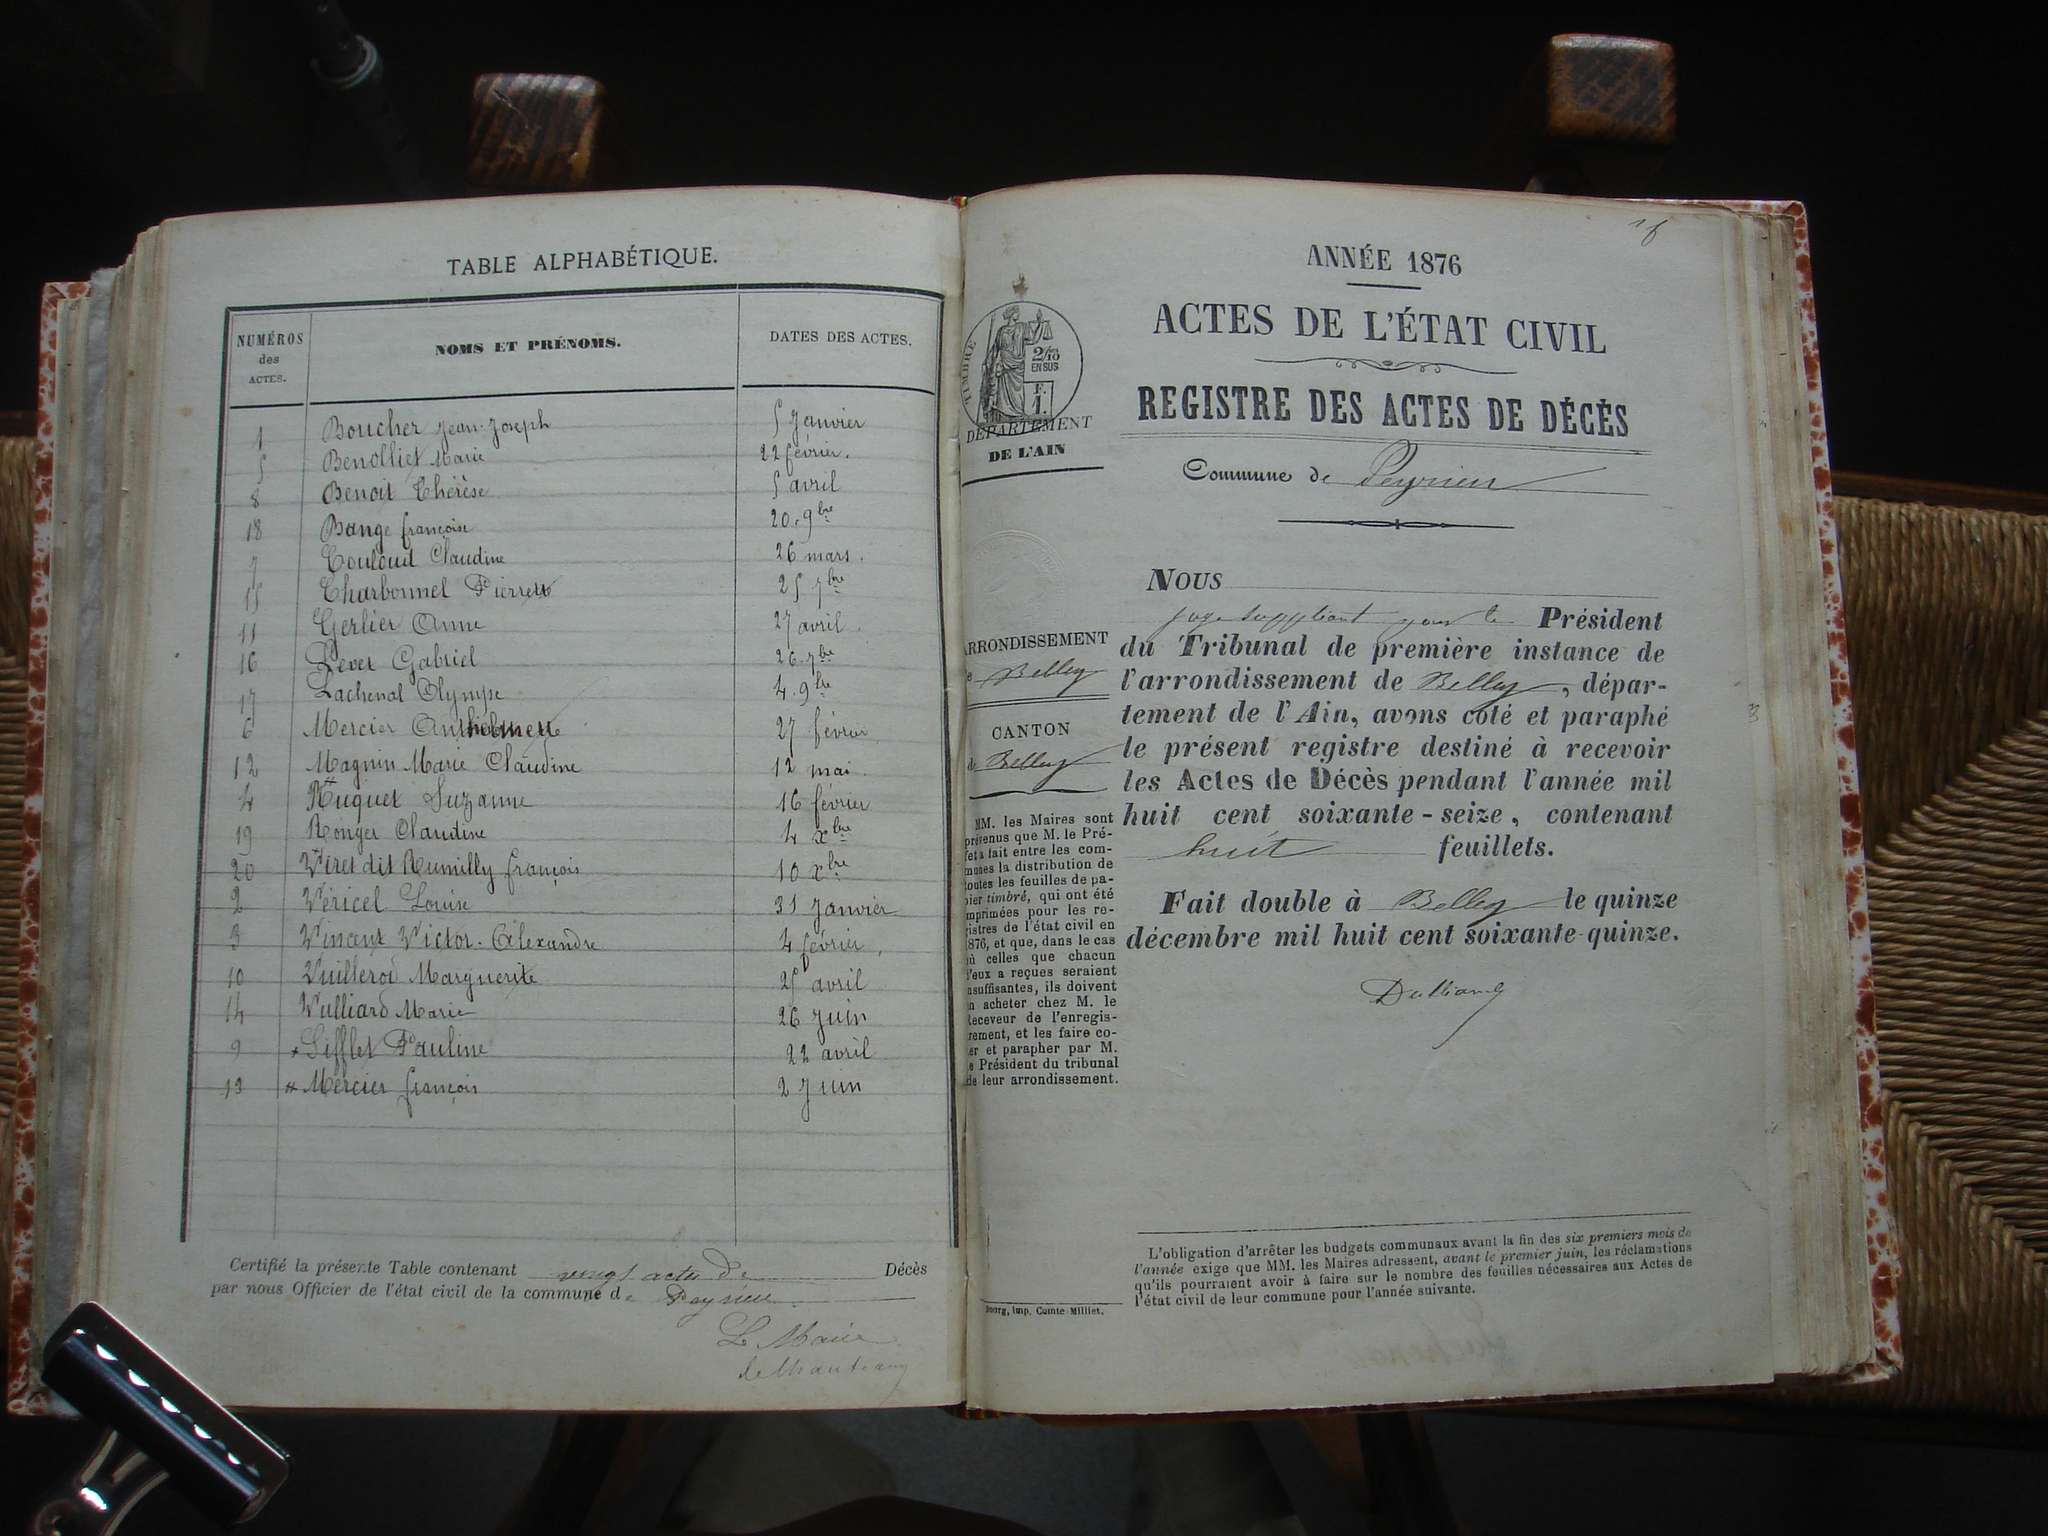 TABLE ALPHABÉTIQUE.
NUMÉROS des ACTES. NOMS ET PRÉNOMS. DATES DES ACTES.
1 Boucher Jean-Joseph 5 Janvier
5 Benolliet Marie 22 février.
8 Benoit Thérèse 5 avril
18 Bange françoise 20. 9bre
7 Couloud Claudine 26 mars.
15 Charbonnel Pierrette 25 7bre
11 Gerlier Anne 27 avril
16 Lever Gabriel 26. 7bre
17 Lachenal Olympe 4. 9bre
6 Mercier Anthelmette 27 février
12 Magnin Marie Claudine 12 mai.
4 Huguet Suzanne 16 février
19 Ronger Claudine 4 xbre
20 Viret dit Rumilly françois 10 xbre
2 Véricel Louise 31 Janvier
3 Vincent Victor-Alexandre 4 février,
10 Vuillerod Marguerite 25 avril
14 Vulliard Marie 26 Juin
9 Sifflet Pauline 22 avril
13 Mercier françois 2 Juin
Certifié la présente Table contenant vingt actes de Décès
par nous Officier de l'état civil de la commune de Peyrieu
Le Maire
ANNÉE 1876
ACTES DE L'ÉTAT CIVIL
REGISTRE DES ACTES DE DÉCÈS
Commune de Peyrieu
TIMBRE
2/10
EN SUS
F.
1.
DÉPARTEMENT
DE L'AIN
ARRONDISSEMENT
Belley
CANTON
de Belley
MM. les Maires sont
prévenus que M. le Pré-
fet a fait entre les com-
munes la distribution de
toutes les feuilles de pa-
pier timbré, qui ont été
imprimées pour les re-
gistres de l'état civil en
1876, et que, dans le cas
où celles que chacun
d'eux a reçues seraient
insuffisantes, ils doivent
en acheter chez M. le
Receveur de l'enregis-
trement, et les faire co-
ter et parapher par M.
le Président du tribunal
de leur arrondissement.
NOUS
juge suppléant pour le Président
du Tribunal de première instance de
l'arrondissement de Belley, dépar-
tement de l'Ain, avons coté et paraphé
le présent registre destiné à recevoir
les Actes de Décès pendant l'année mil
huit cent soixante-seize, contenant
huit feuillets.
Fait double à Belley le quinze
décembre mil huit cent soixante-quinze.
L'obligation d'arrêter les budgets communaux avant la fin des six premiers mois de
l'année exige que MM. les Maires adressent, avant le premier juin, les réclamations
qu'ils pourraient avoir à faire sur le nombre des feuilles nécessaires aux Actes de
l'état civil de leur commune pour l'année suivante.
Bourg, imp. Comte-Milliet.